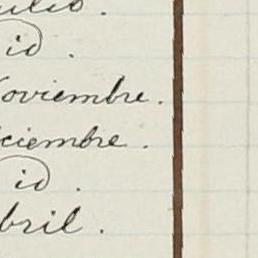 ulio.
id.
oviembre.
iciembre.
id.
bril.